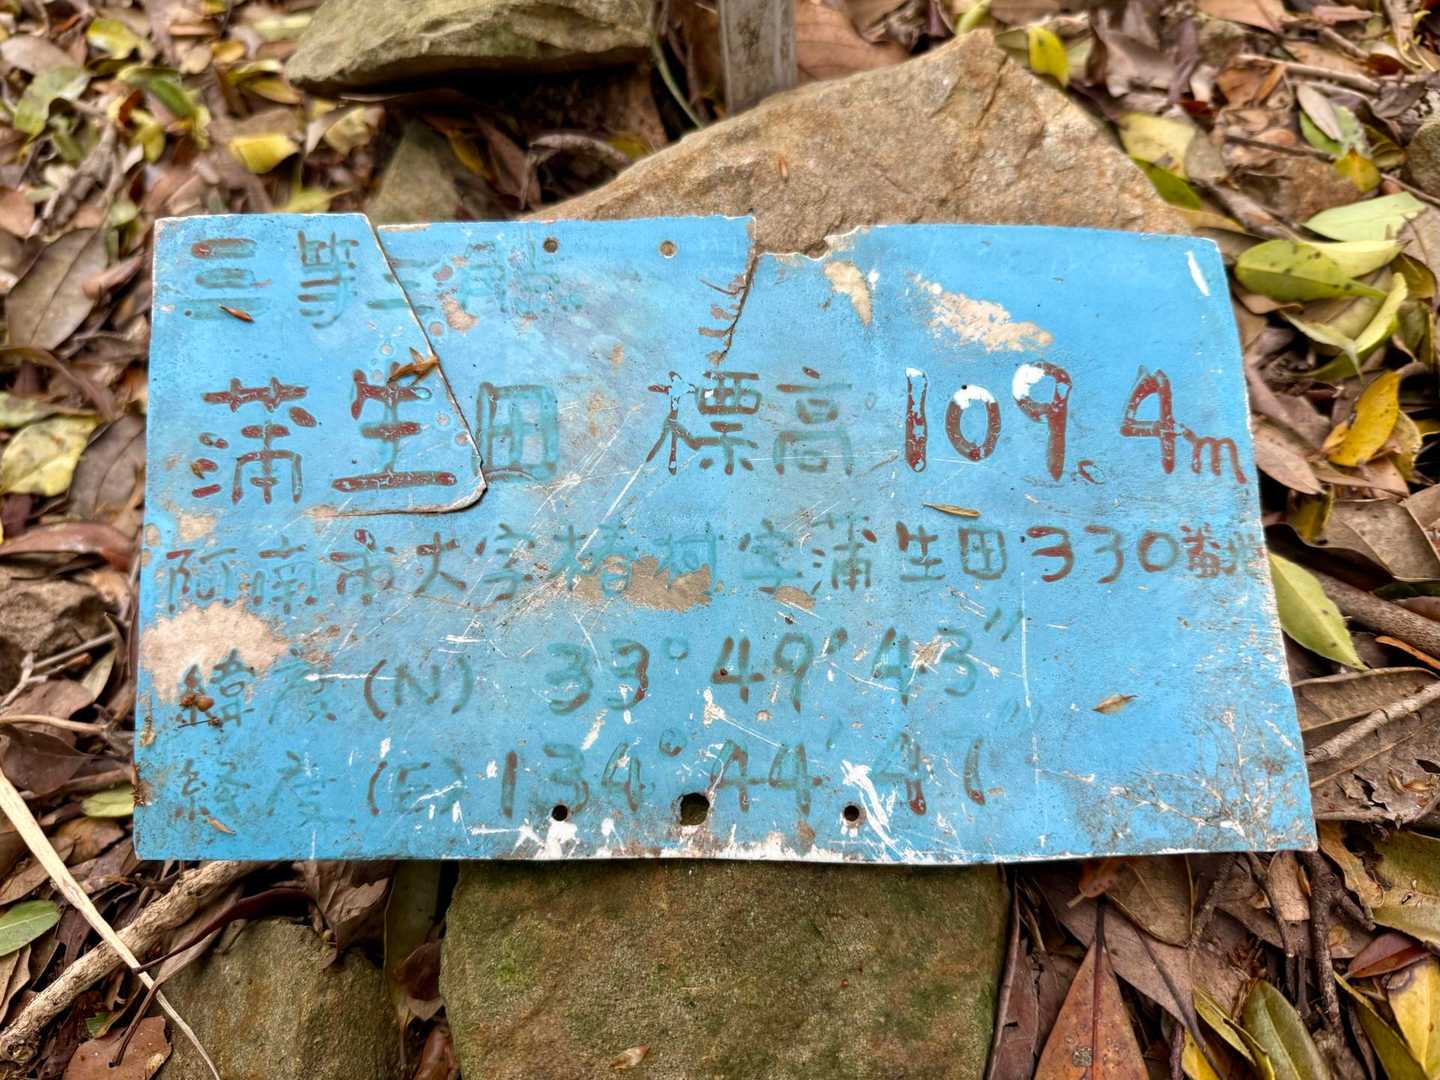 三等三角点
蒲生田 標高 109.4m
阿南市大字椿村字蒲生田330番地
緯度(N) 33°49'43"
経度(E) 134°44'47"